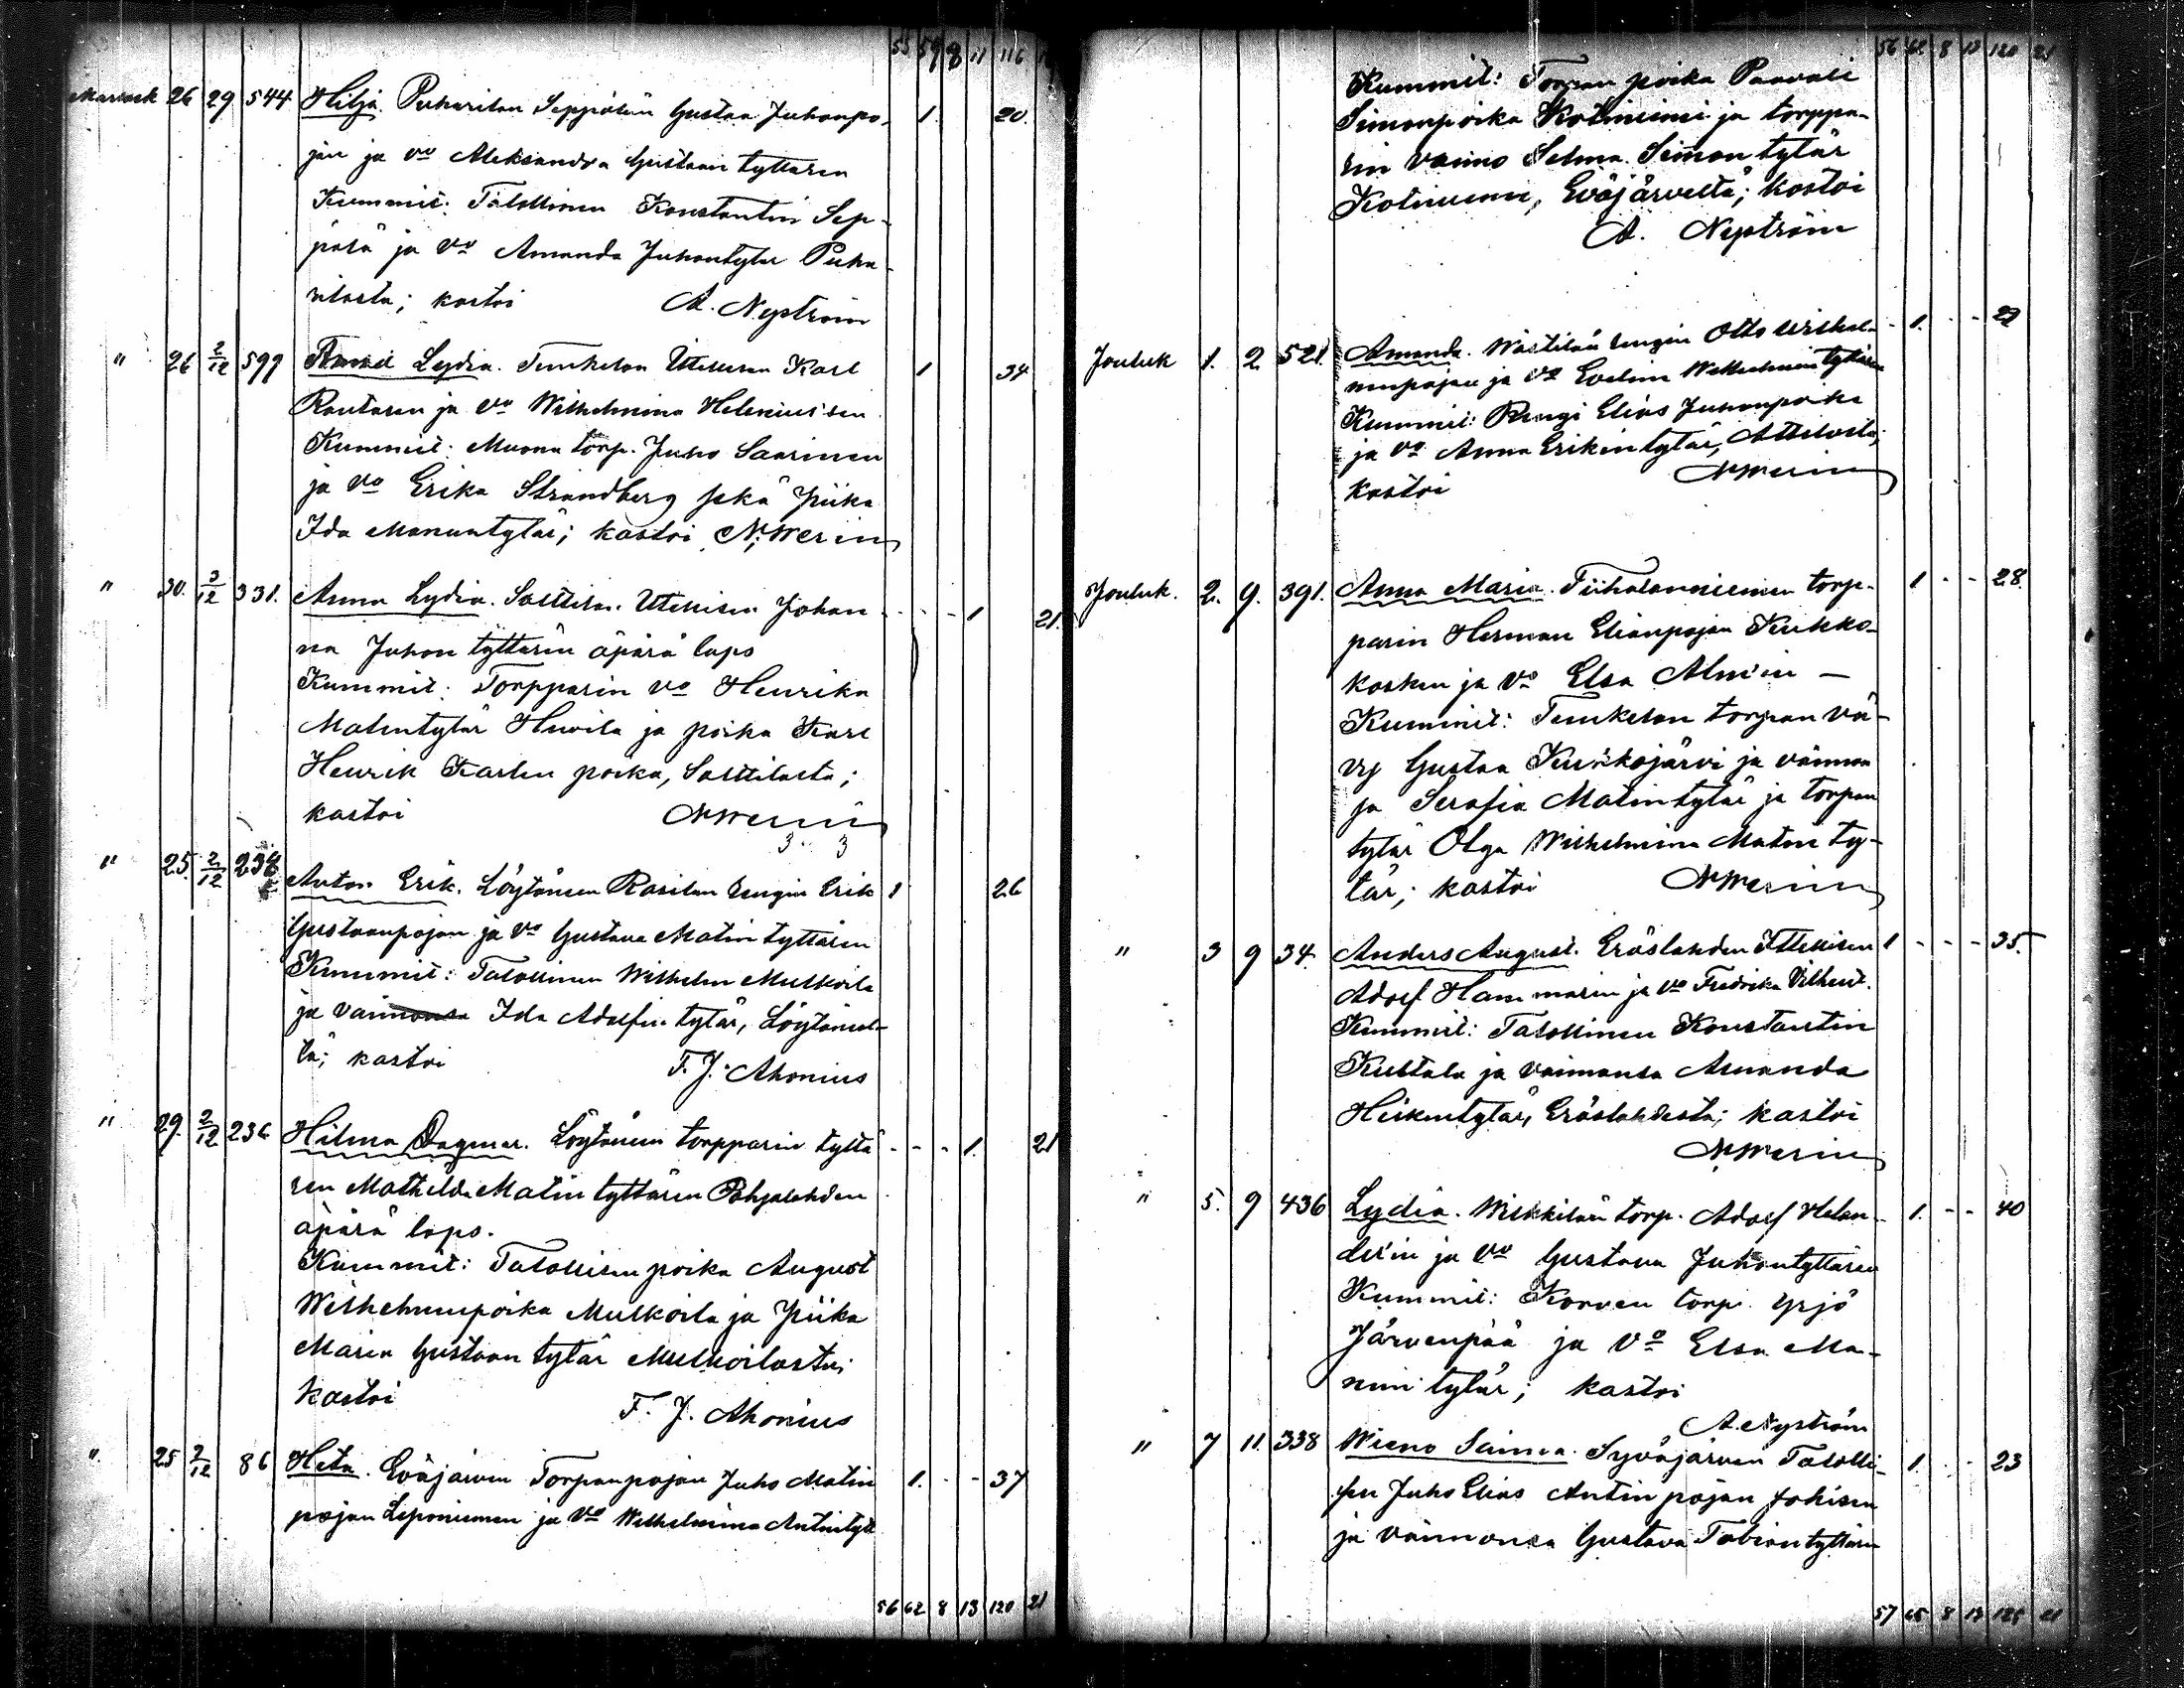 55 59 8 11 116
Marrask 26 29 544 Hilja. Puharilan Seppälän Gustaa Juhonpo- 1 20.
jan ja vo Aleksandra Gustaan tyttären
Kummit: Talollinen Konstantin Sep-
pälä ja vo Amanda Juhontytär Puha-
rilasta; kastoi A. Nyström
" 26 2/12 599 Lydia. Tunkelon Itellisen Karl 1 34
Rantasen ja vo Wilhelmina Helenius'sen
Kummit: Muona torp. Juho Saarinen
ja vo Erika Strandberg sekä piika
Ida Manuntytär; kastoi N. Merin
" 30. 2/12 331. Anna Lydia. Solttilan Itellisen Johan- - - - 1 21.
na Juhon tyttären äpärä laps
Kummit: Torpparin vo Henrika
Matintytär Huvila ja poika Karl
Henrik Karlin poika, Solttilasta;
kastoi N Merin
3. 3
" 25. 2/12 238 Anton Erik. Löytänen Rasilan rengin Erik 1 26
Gustaanpojan ja vo Gustava Matin tyttären
Kummit: Talollinen Wilhelm Mulkoila
ja vaimonsa Ida Adolfin tytär, Löytänel-
tä; kastoi F. J. Ahonius
" 29. 2/12 236 Hilma Dagmar. Löytänen torpparin tyttä- - - - 1. 21
ren Mathilda Matin tyttären Pohjalahden
äpärä laps.
Kummit: Talollisen poika August
Wilhelminpoika Mulkoila ja piika
Maria Gustaan tytär Mulkoilasta;
kastoi F. J. Ahonius
" 25 2/12 86 Heta. Eväjärven Torpanpojan Juho Matin 1. - - 37
pojan Leponiemen ja vo Wilhelmina Antintytt
56 62 8 13 120 21
56 62 8 13 120 21
Kummit: Torpan poika Paavali
Simonpoika Kotiniemi ja torppa-
rin vaimo Selma Simon tytär
Kotiniemi, Eväjärveltä; kastoi
A. Nyström
Jouluk 1. 2. 521. Amanda. Wästilän rengin Otto Wilhel- - 1. - - 22
minpojan ja vo Evelina Wilhelmin tyttären
Kummit: Rengi Elias Juhonpoika
ja vo Anna Erikin tytär, Attilasta;
kastoi N Merin
Jouluk. 2. 9. 391. Anna Maria. Tiihalanniemen torp- 1 - - 28.
parin Herman Elianpojan Kukko-
kosken ja vo Elsa Alm'in —
Kummit: Tunkelon torpan vä-
vy Gustaa Kuirkojärvi ja vaimon
sa Serafia Matintytär ja torpan
tytär Olga Wilhelmina Matin ty-
tär; kastoi N Merin
" 3 9 34. Anders August. Eräslahden Itellisen 1 - - - 35.
Adolf Hammarin ja vo Fredrika Vilhelmt.
Kummit: Talollinen Konstantin
Kustala ja vaimonsa Amanda
Heikintytär, Eräslahdesta; kastoi
N Merin
" 5. 9 436 Lydia. Wirkkilän torp. Adolf Helan- - 1. - - 40
der'in ja vo Gustava Juhontyttären
Kummit: Korven torp. Yrjö
Järvenpää ja vo Elsa Ma-
nuni tytär; kastoi
A. Nyström
" 7 11. 338 Wieno Saimia. Syväjärven Talolli- 1. - - 23
sen Juho Elias Antin pojan
ja vaimonsa Gustava Tobiantyttären
57 65 8 13 125 21